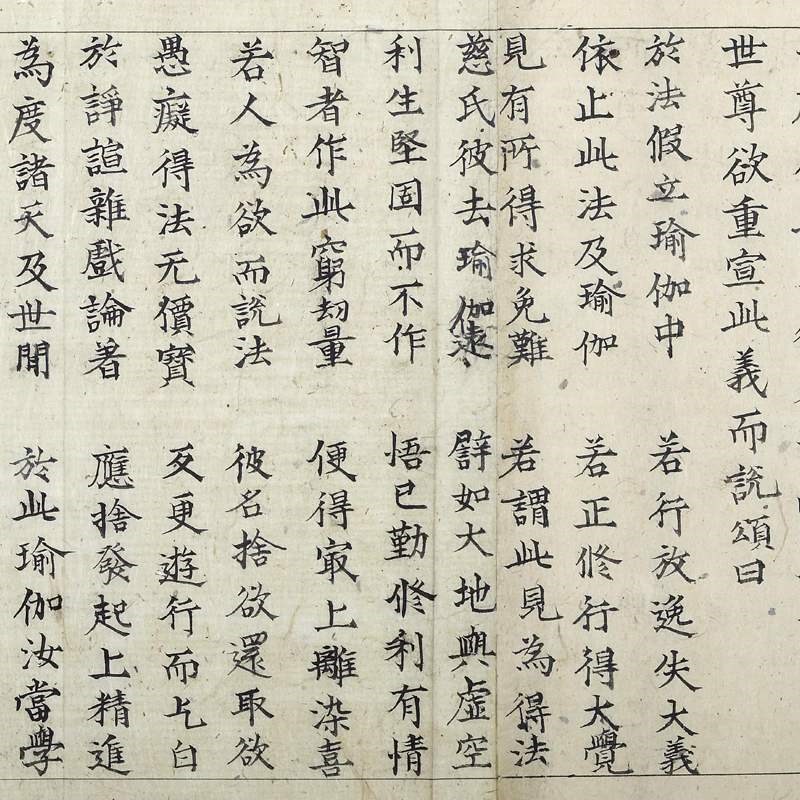 世尊欲重宣此義而説頌曰
於法假立瑜伽中　若行放逸失大義
依止此法及瑜伽　若正修行得大覺
見有所得求免難　若謂此見為得法
慈氏彼去瑜伽遠　譬如大地與虛空
利生堅固而不作　悟已勤修利有情
智者作此窮劫量　便得㝡上離染喜
若人為欲而説法　彼名捨欲還取欲
愚癡得法无價寶　反更遊行而乞白
於諍諠雜戲論著　應捨發起上精進
為度諸天及世間　於此瑜伽汝當學